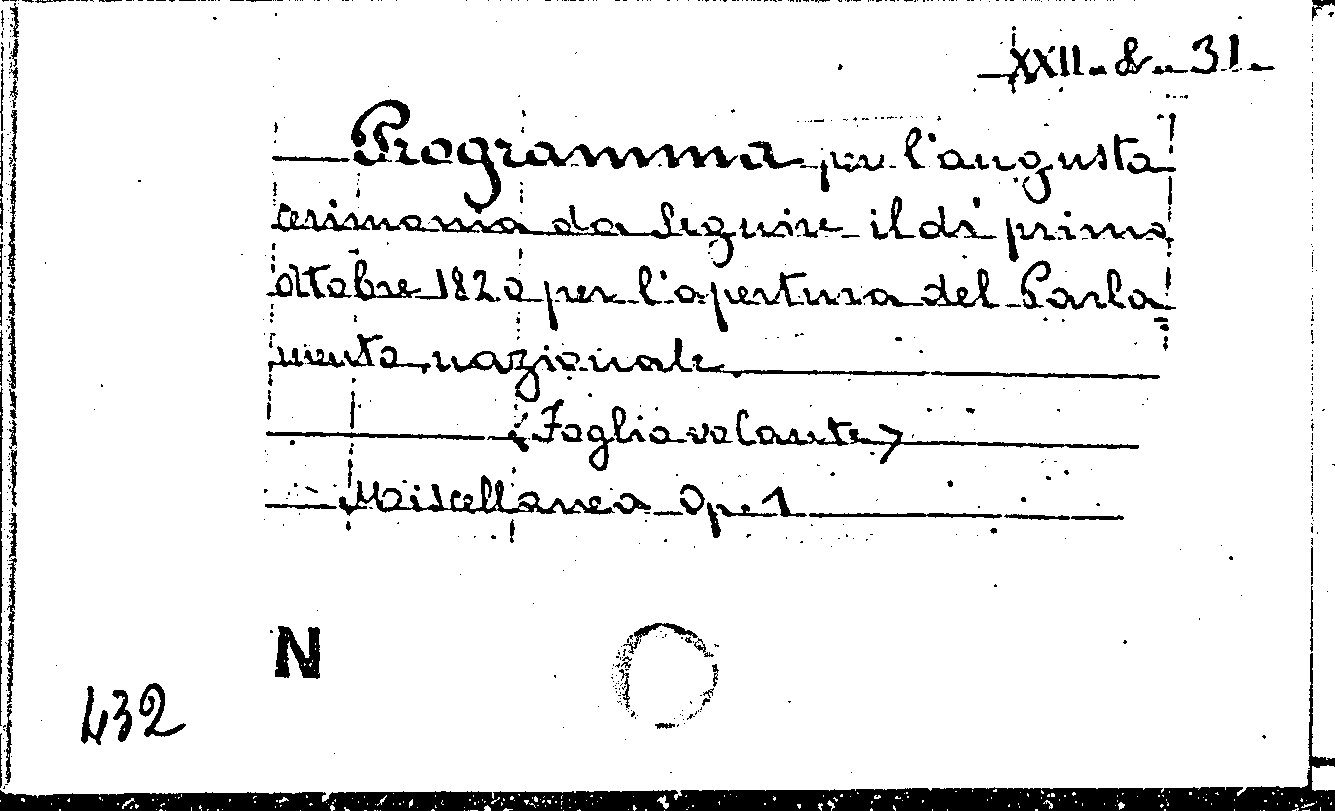 XXII. &. 31.
Programma per l'augusta
cerimonia da seguire il dì primo
ottobre 1820 per l'apertura del Parla
mento nazionale.
(Foglio volante)
Miscellanea Op. 1
N
432